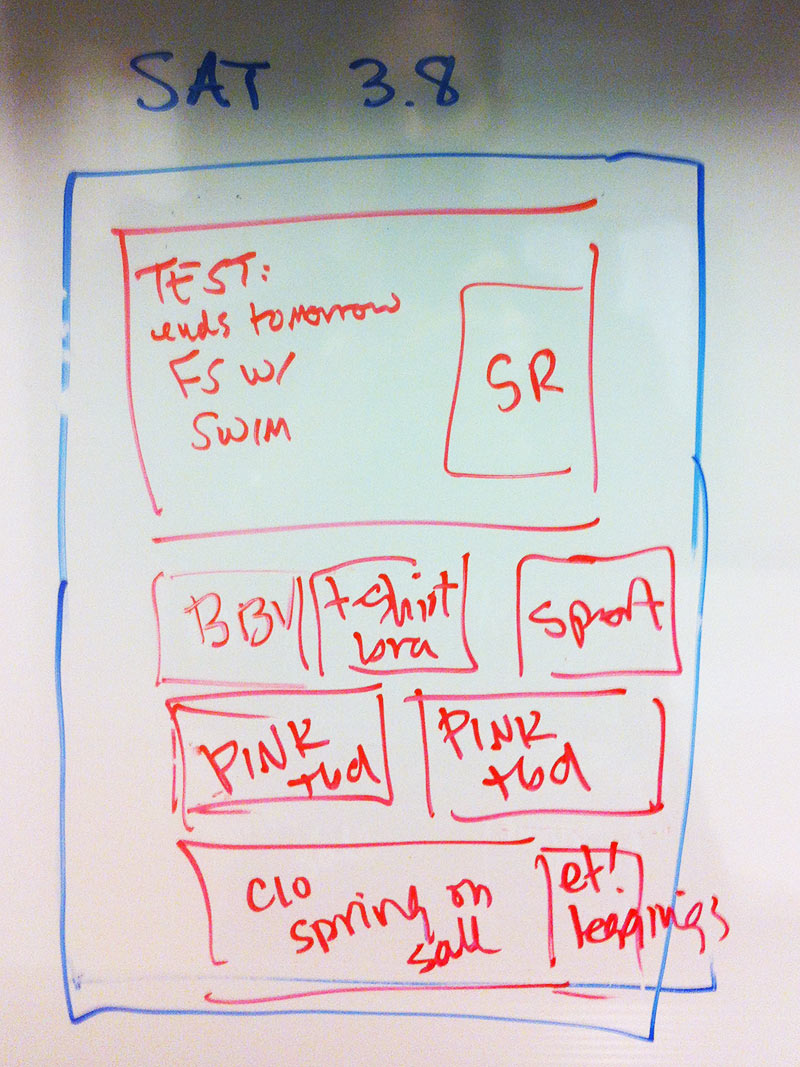 SAT 3.8
TEST:
ends tomorrow
FS W/
SWIM
SR
BBV
t-shirt
bra
sport
PINK
tbd
PINK
tbd
clo
spring on
sale
et!
leggings